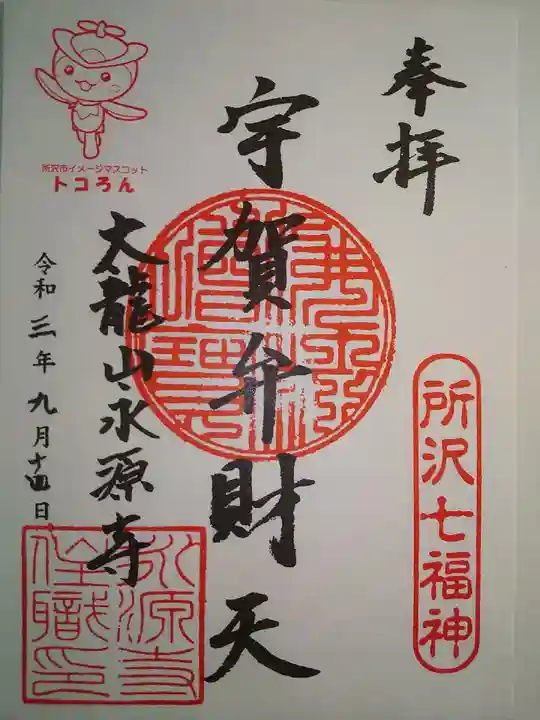 奉拝
所沢七福神
宇賀弁財天
大龍山永源寺
令和三年九月十四日
所沢市イメージマスコット
トコろん
永源寺
住職印